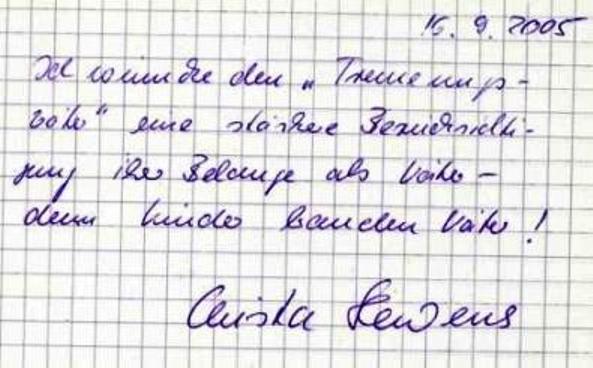 16. 9. 2005
Ich wünsche den „Trennungs-
väter“ eine stärkere Berücksichti-
gung ihrer Belange als Väter –
denn Kinder brauchen Väter!
Christa Stewens